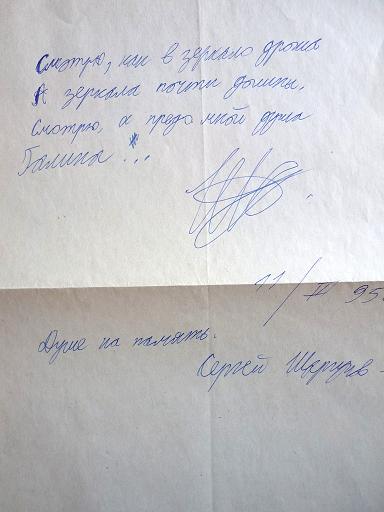 Смотрю, как в зеркало дрожа
А зеркала почти должны.
Смотрю, а предо мной душа
Галина...
11/II 95.
Душе на память.
Сергей Шаргунов